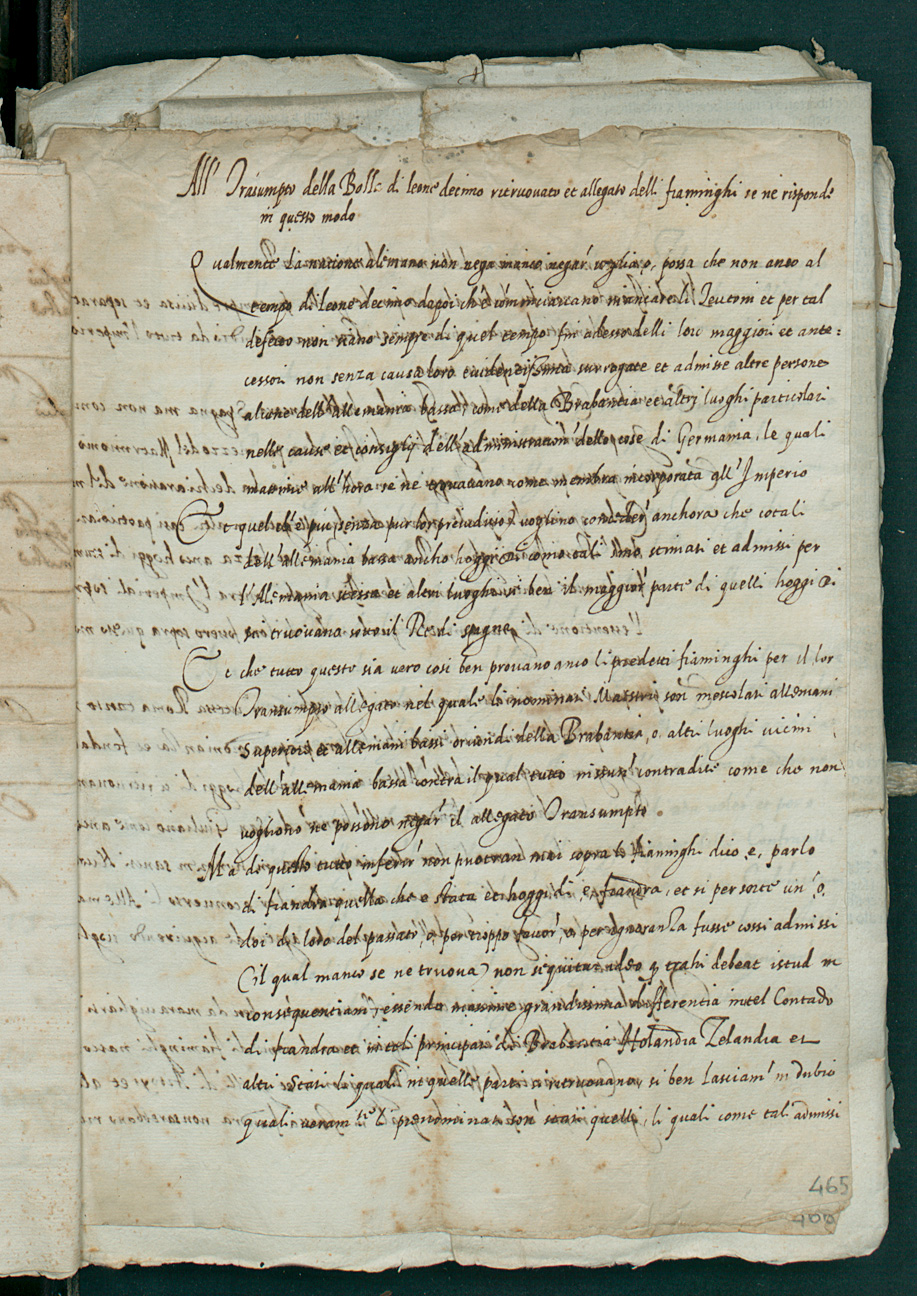 All' Transumpto della Bolla di leone decimo ritruovato et allegato delli fiaminghi se ne rispond
in questo modo
Qualmente La natione alemana non nega manco negar voglia o, possa che non anco al
tempo di leone decimo dapoi che comminciarcano mancare li Teutoni et per tal
defetto non siano sempre di quel tempo fin adesso delli lor maggiori et ante=
cessori non senza causa loro evidentissima surrogate et admisse altre persone
alcune dell'allemania bassa, come della Brabantia et altri luoghi particolari
nelle cause et consiglij dell'administration dello cose di Germania, le quali
massime all'hora se ne truovavano come membra incorporata all' Imperio
Et quel che e piu senza pur lor preiudicio voglino conceder anchora che cotali
dell'allemania bassa ancho hoggi di como tali sino stimati et admissi per
l'Alemania stessa et altri luoghi si ben il maggior parte di quelli hoggi di
si truovana sotto il Re di spagna
Et che tutto questo sia vero cosi ben provano anco li predetti fiaminghi per il lor
Transumpto allegato nel quale li nominati Mastri son mescolati allemani
superiori et allemani bassi oriondi della Brabantia, o altri luoghi vicini
dell'allemania bassa contra il qual tutto nissun contradice come che non
vogliono ne possono negar il allegato Transumpto.
Ma di questo tutto inferir non puotran mai sopra li fiaminghi dico e, parlo
di fiandra quella che e stata et hoggi di e, fiandra, et si per sorte un' o,
doi di loro del passato, o, per troppo favor, o, per ignoranza fusse cossi admissi
(il qual manco se ne truova) non sequitur adeo q trahi debeat istud in
consequentiam, essendo massime grandissima differentia intel Contado
di fiandra et in tal principati di Brabantia Holandia Zelandia et
altri Stati li quali in quelle parti si ritruovano, si ben lasciam' in dubio
quali veram.te li prenominati son' stati quelli, li quali come tal' admissi
465
400